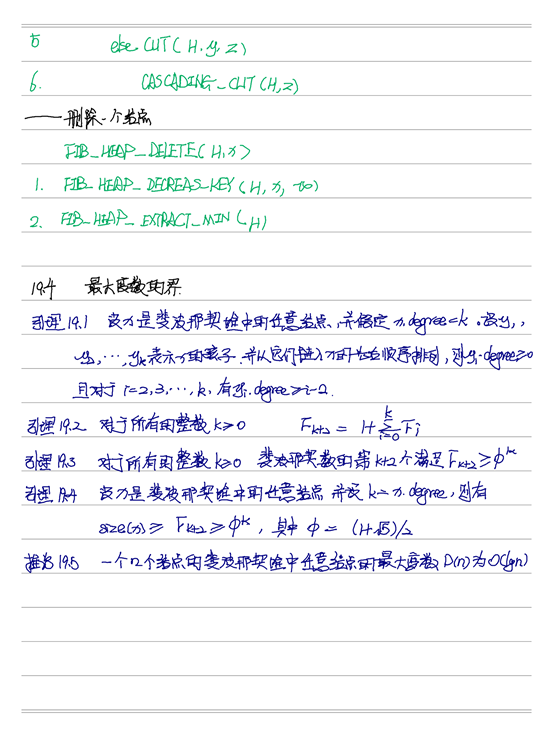 5 else CUT(H, y, z)
6. CASCADING_CUT(H, z)
——删除一个结点
FIB_HEAP_DELETE(H, x)
1. FIB_HEAP_DECREAS_KEY(H, x, -∞)
2. FIB_HEAP_EXTRACT_MIN(H)
19.4 最大度数的界
引理 19.1 设 x 是斐波那契堆中的任意结点,并假定 x.degree=k.设 y₁,
y₂, ⋯, yₖ 表示 x 的孩子.并以它们链入 x 的先后顺序排列,则 y₁.degree≥0
且对于 i=2,3,⋯,k,有 yᵢ.degree≥i-2
引理 19.2 对于所有的整数 k≥0 Fₖ₊₂ = 1+∑ᵢ₌₀ᵏ Fᵢ
引理 19.3 对于所有的整数 k≥0 斐波那契数的第 k+2 个满足 Fₖ₊₂ ≥ Φᵏ
引理 19.4 设 x 是斐波那契堆中的任意结点 并设 k=x.degree,则有
size(x) ≥ Fₖ₊₂ ≥ Φᵏ, 其中 Φ = (1+√5)/2
推论 19.5 一个 n 个结点的斐波那契堆中任意结点的最大度数 D(n) 为 O(lgn)